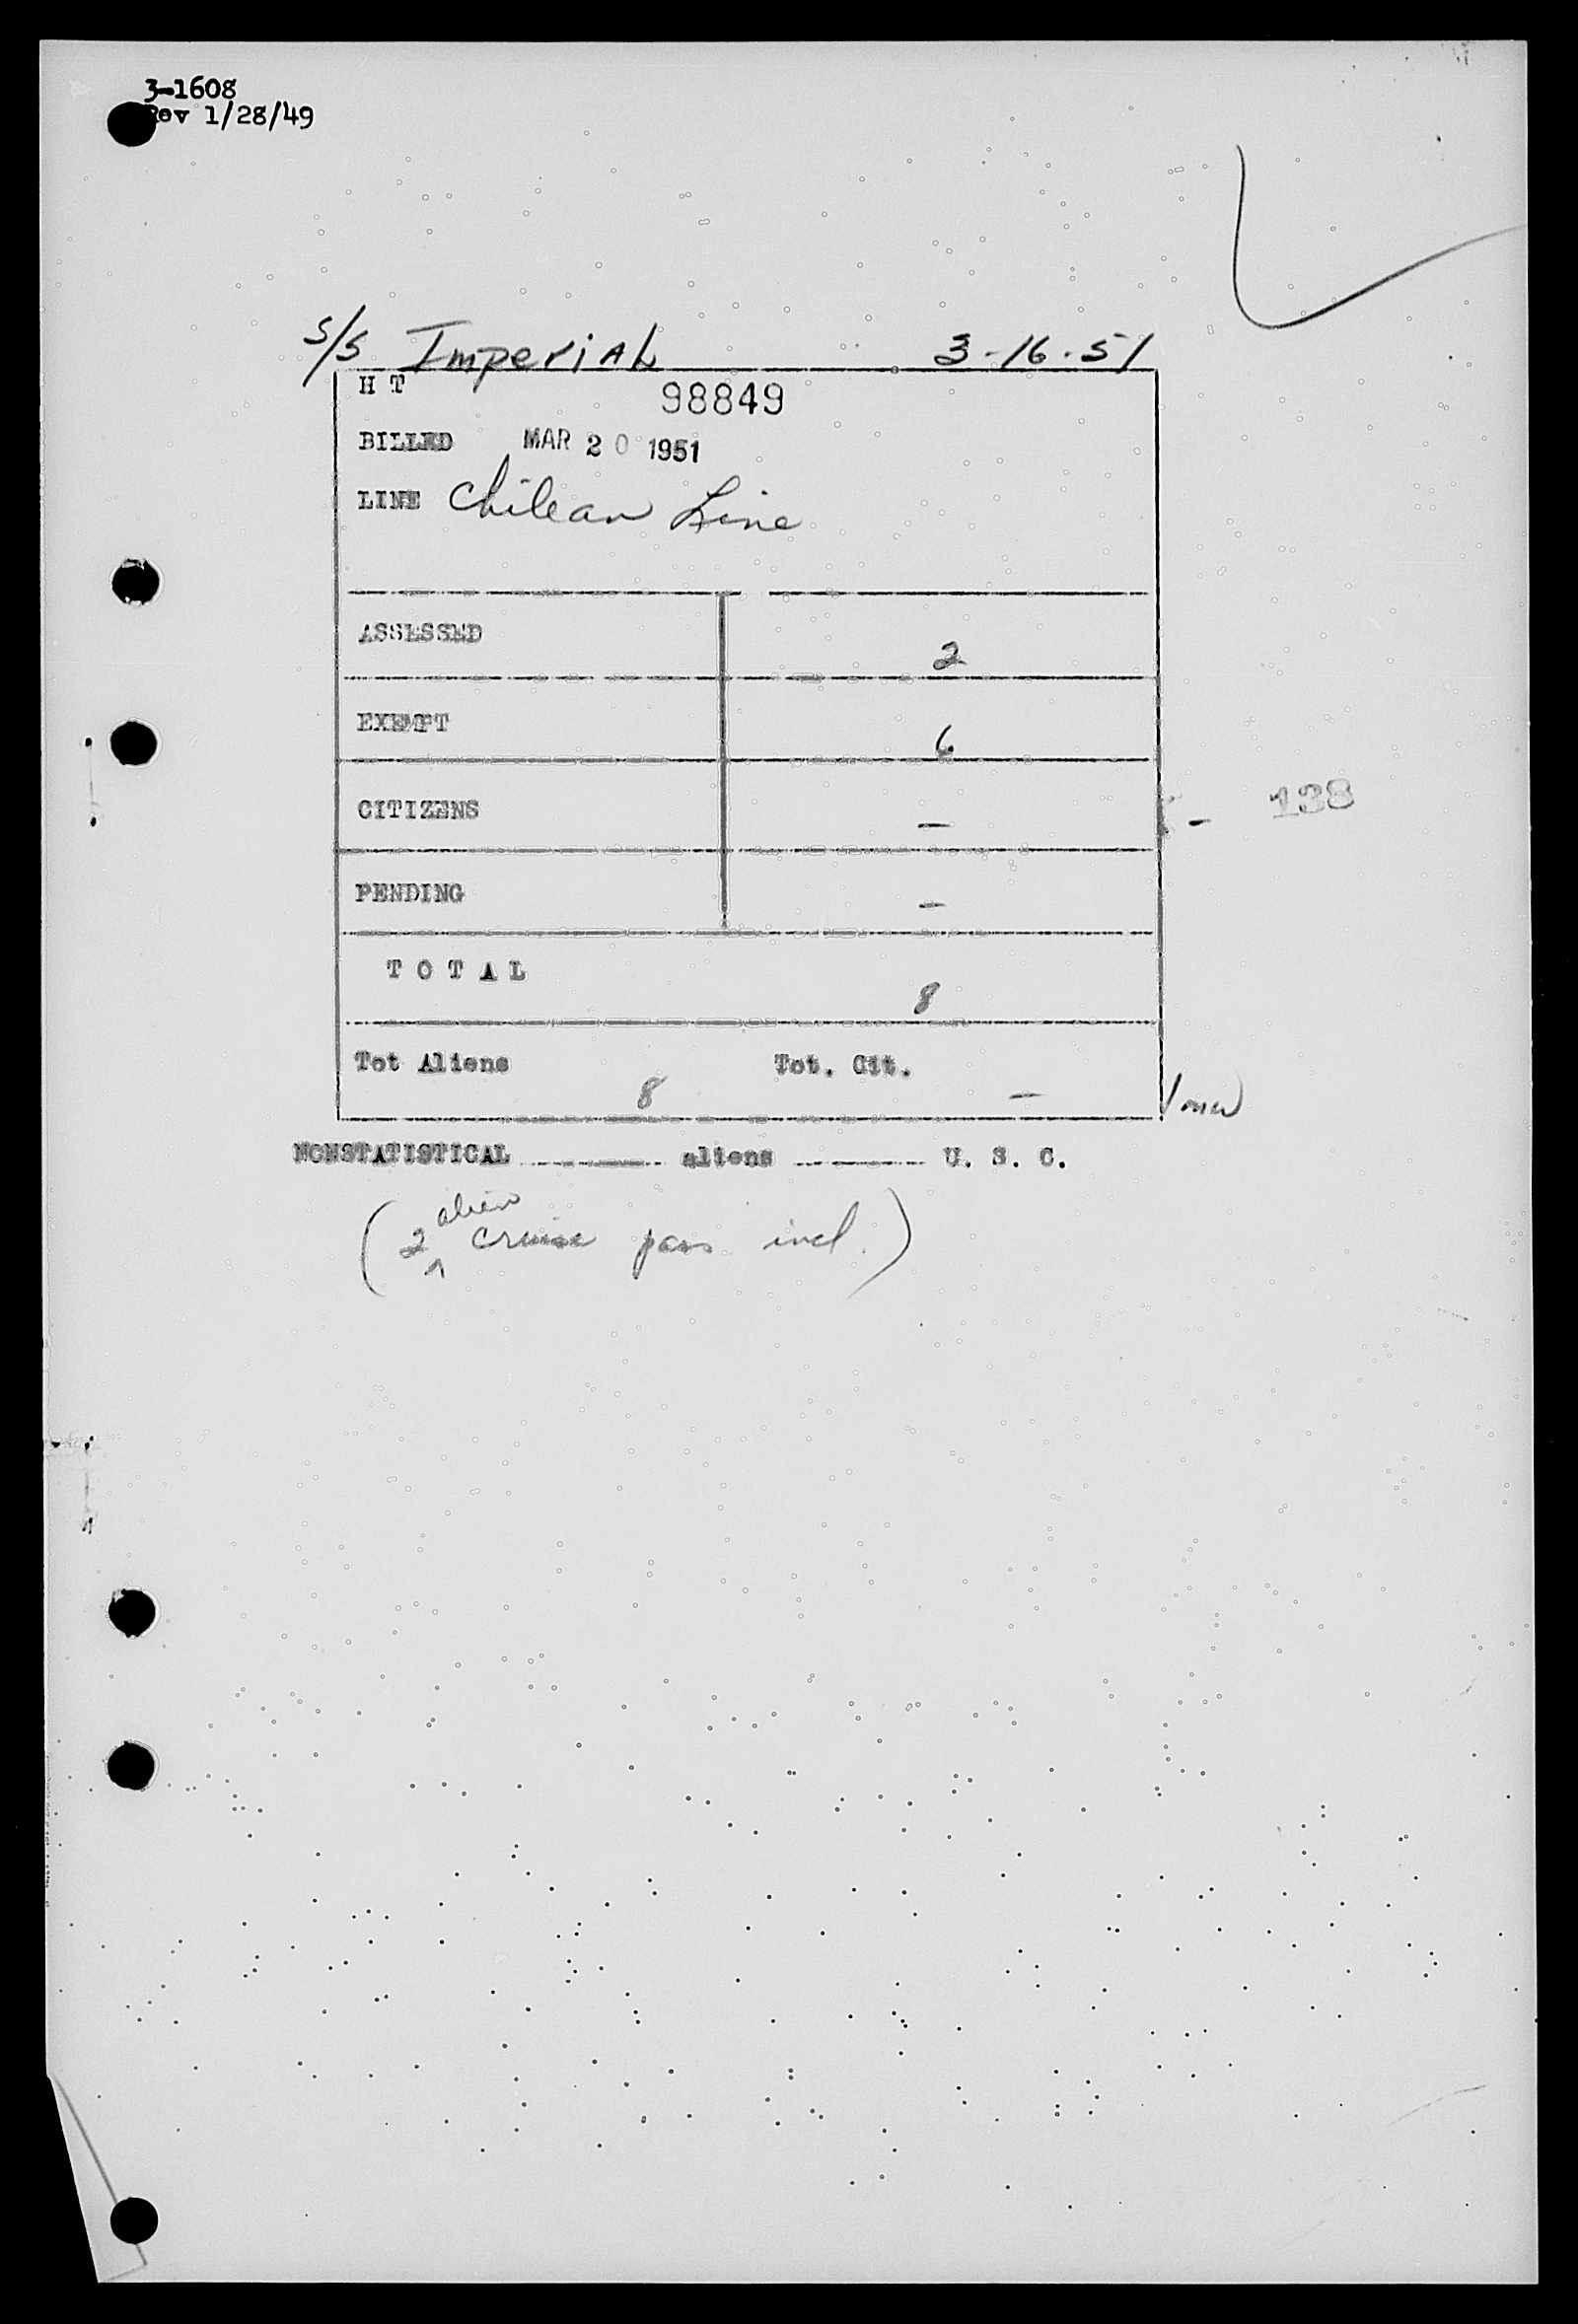 3-1608
Rev 1/28/49
S/S Imperial 3-16-51
H T 98849
BILLED MAR 20 1951
LINE Chilean Line
ASSESSED 2
EXEMPT 6
CITIZENS –
PENDING –
T O T A L 8
Tot Aliens 8 Tot. Cit. –
NONSTATISTICAL ---------- aliens ---------- U. S. C.
(2 alien cruise pass incl.)
- 138